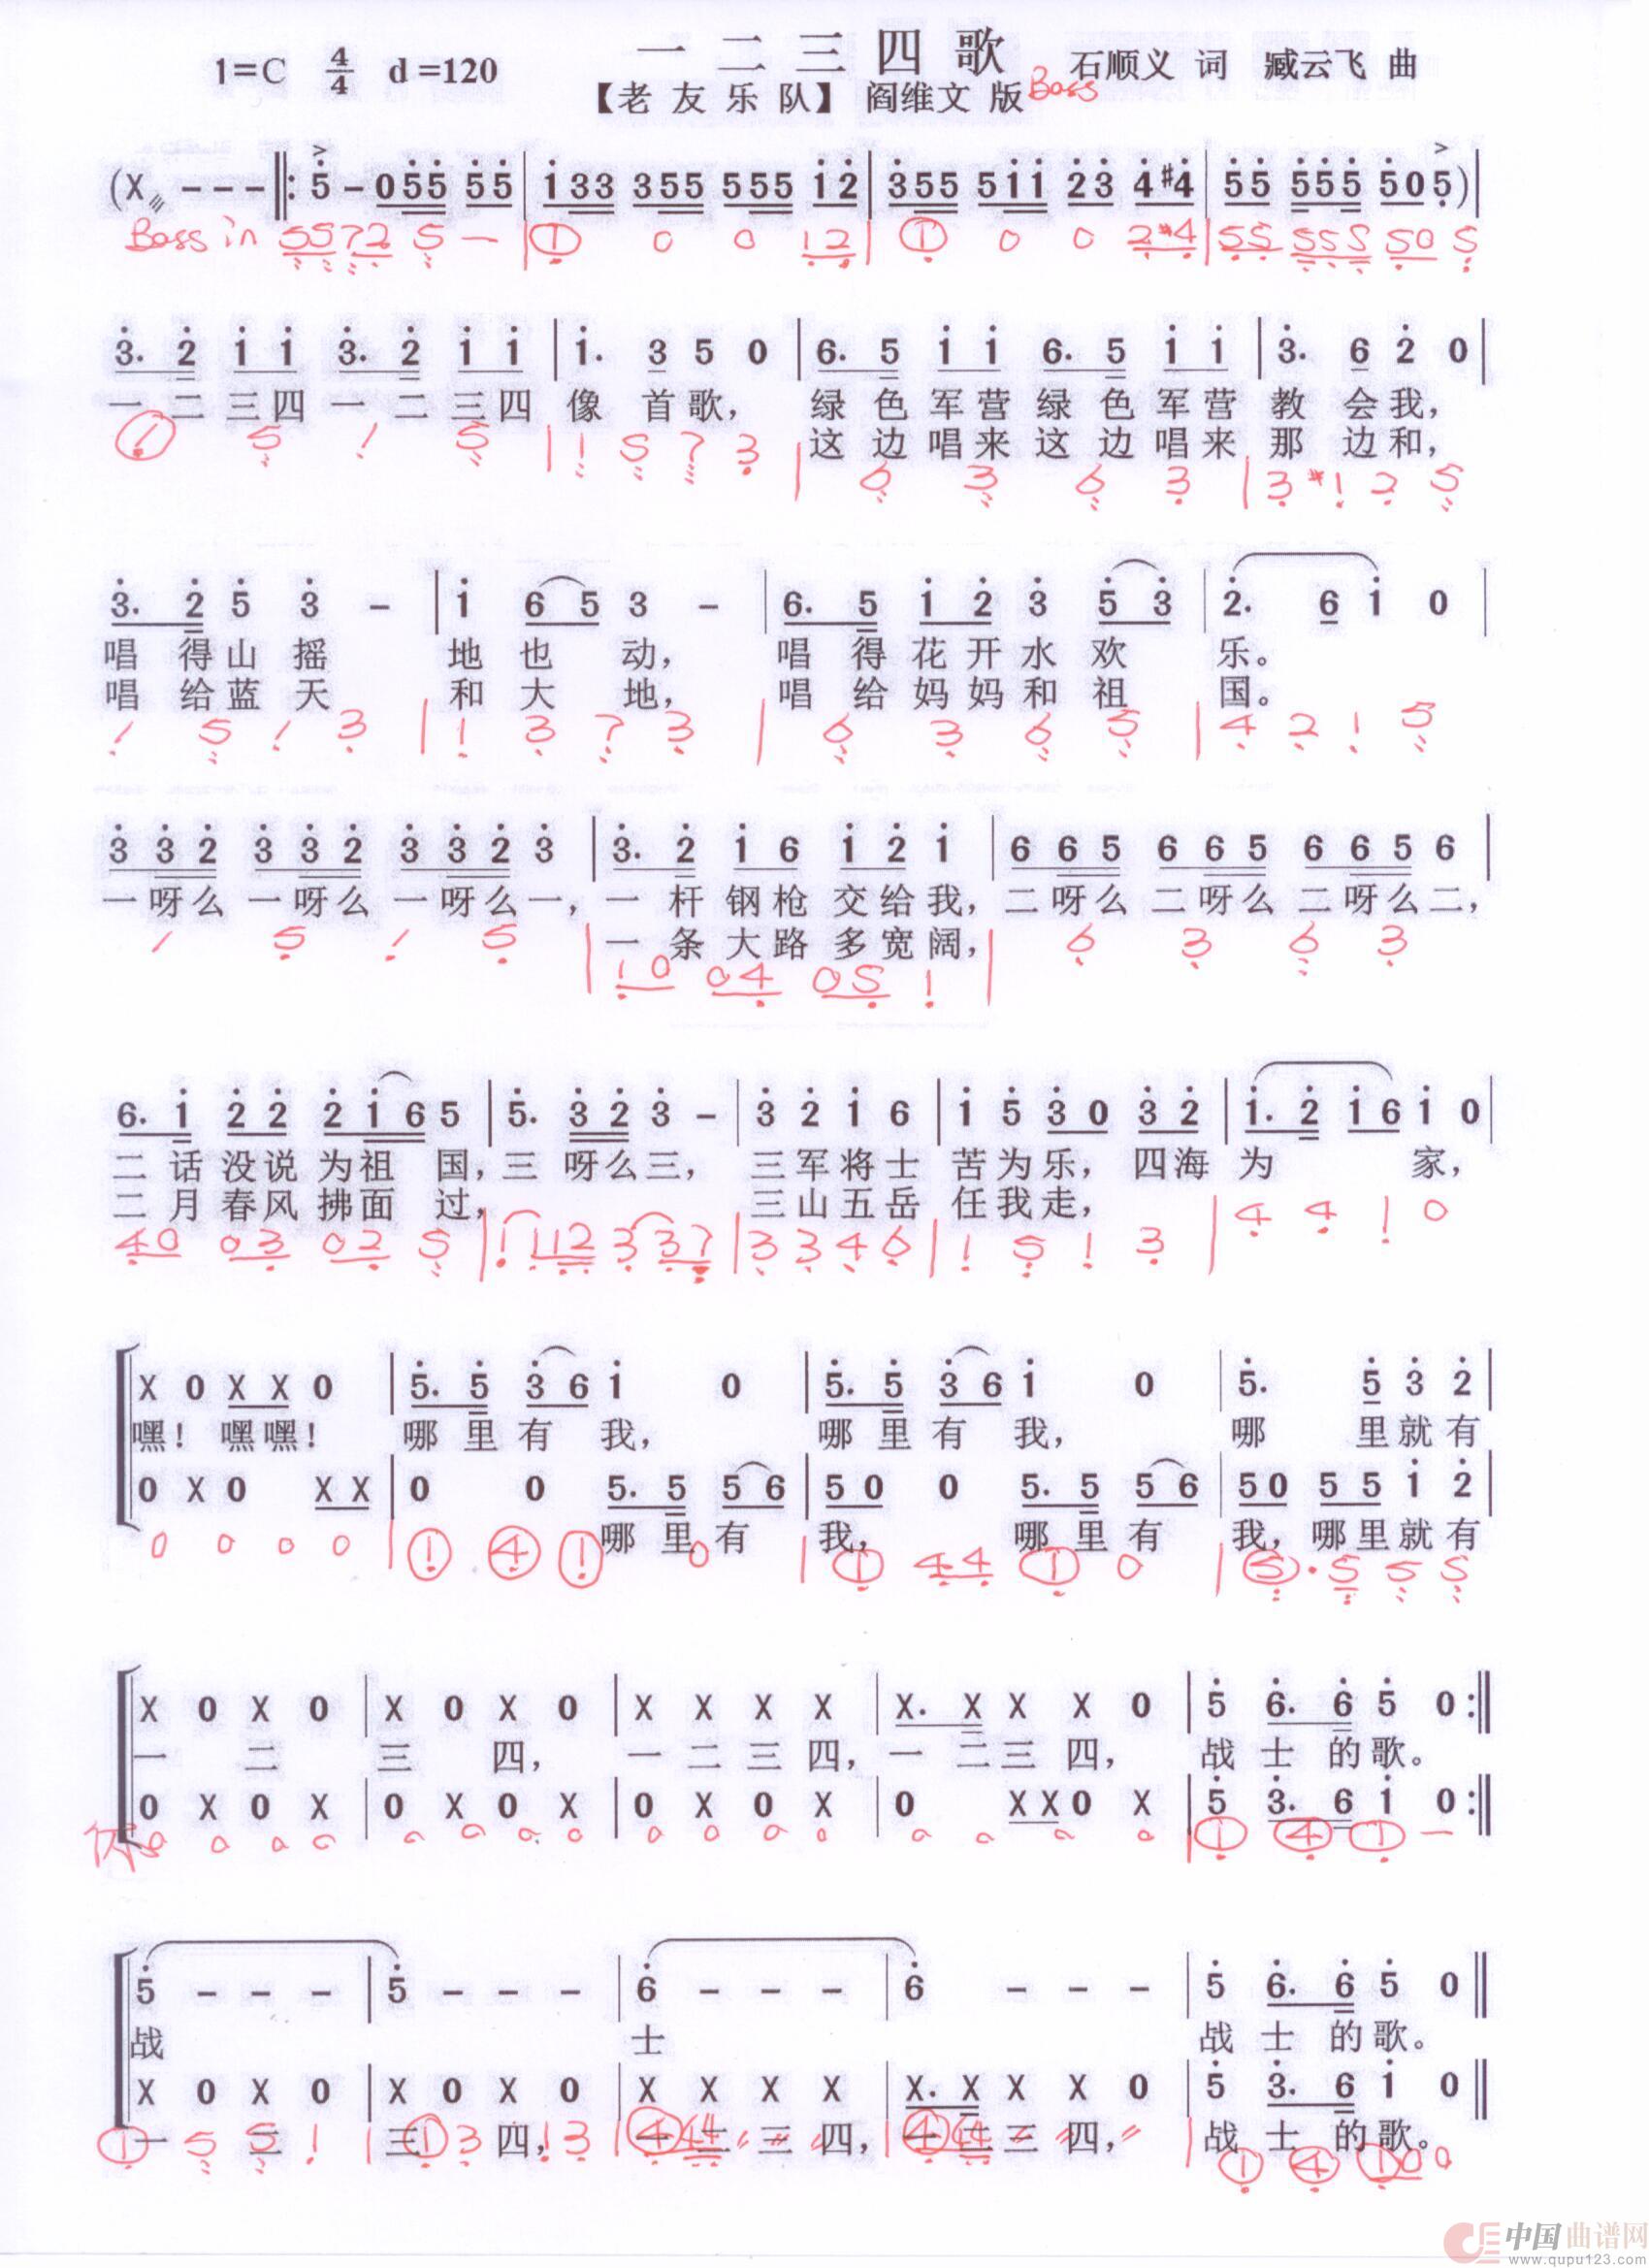 一 二 三 四 歌
1=C 4/4 d =120 石顺义 词 臧云飞 曲
【老 友 乐 队】 阎维文 版 Bass
(X - - - ‖: 5 - 0 5 5 5 5 | 1 3 3 3 5 5 5 5 5 1 2 | 3 5 5 5 1 1 2 3 4 #4 | 5 5 5 5 5 5 0 5 )|
Bass in 5 5 7 2 5 - | 1 0 0 1 2 | 1 0 0 2 #4 | 5 5 5 5 5 5 0 5
3. 2 1 1 3. 2 1 1 | 1. 3 5 0 | 6. 5 1 1 6. 5 1 1 | 3. 6 2 0 |
一 二 三 四 一 二 三 四 像 首 歌， 绿 色 军 营 绿 色 军 营 教 会 我，
这 边 唱 来 这 边 唱 来 那 边 和，
1 5 1 5 | 1 5 7 3 | 6 3 6 3 | 3 #1 2 5
3. 2 5 3 - | 1 6 5 3 - | 6. 5 1 2 3 5 3 | 2. 6 1 0 |
唱 得 山 摇 地 也 动， 唱 得 花 开 水 欢 乐。
唱 给 蓝 天 和 大 地， 唱 给 妈 妈 和 祖 国。
1 5 1 3 | 1 3 7 3 | 6 3 6 5 | 4 2 1 5
3 3 2 3 3 2 3 3 2 3 | 3. 2 1 6 1 2 1 | 6 6 5 6 6 5 6 6 5 6 |
一 呀 么 一 呀 么 一 呀 么 一， 一 杆 钢 枪 交 给 我， 二 呀 么 二 呀 么 二 呀 么 二，
一 条 大 路 多 宽 阔，
1 5 1 5 | 1 0 0 4 0 5 1 | 6 3 6 3
6. 1 2 2 2 1 6 5 | 5. 3 2 3 - | 3 2 1 6 | 1 5 3 0 3 2 | 1. 2 1 6 1 0 |
二 话 没 说 为 祖 国， 三 呀 么 三， 三 军 将 士 苦 为 乐， 四 海 为 家，
二 月 春 风 拂 面 过， 三 山 五 岳 任 我 走，
4 0 0 3 0 2 5 | 1 1 1 2 3 3 7 | 3 3 4 6 | 1 5 1 3 | 4 4 1 0
X 0 X X 0 | 5. 5 3 6 1 0 | 5. 5 3 6 1 0 | 5. 5 3 2 |
嘿！ 嘿 嘿！ 哪 里 有 我， 哪 里 有 我， 哪 里 就 有
0 X 0 X X | 0 0 5. 5 5 6 | 5 0 0 5. 5 5 6 | 5 0 5 5 1 2 |
哪 里 有 我， 哪 里 有 我， 哪 里 就 有
0 0 0 0 | 1 4 1 0 | 1 4 4 1 0 | 5. 5 5 5
X 0 X 0 | X 0 X 0 | X X X X | X. X X X 0 | 5 6. 6 5 0 :‖
一 二 三 四， 一 二 三 四， 一 二 三 四， 战 士 的 歌。
0 X 0 X | 0 X 0 X | 0 X 0 X | 0 X X 0 X | 5 3. 6 1 0 :‖
0 0 0 0 0 0 0 0 0 0 0 0 0 0 0 0 | 1 4 1 -
5 - - - | 5 - - - | 6 - - - | 6 - - - | 5 6. 6 5 0 ‖
战 士 战 士 的 歌。
X 0 X 0 | X 0 X 0 | X X X X | X. X X X 0 | 5 3. 6 1 0 ‖
一 二 三 四， 一 二 三 四， 一 二 三 四， 战 士 的 歌。
1 5 5 1 | 1 3 1 3 | 4 4 4 | 4 4 4 | 1 4 1 0 0
中国曲谱网
www.qupu123.com